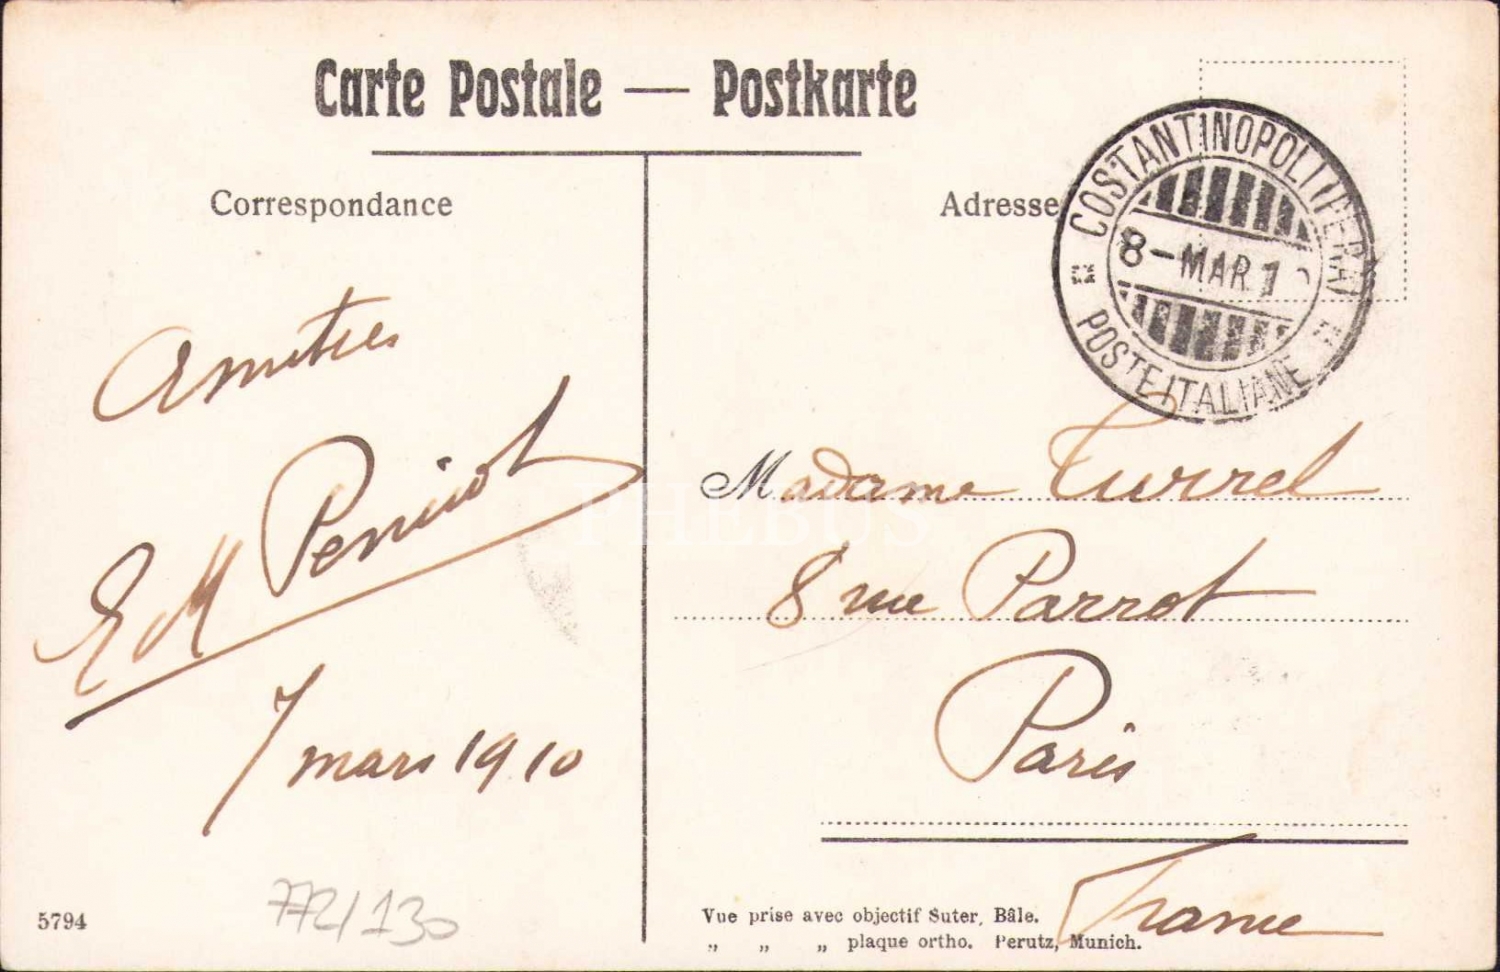 Carte Postale — Postkarte
Correspondance
Adresse
COSTANTINOPOLI (PERA)
8-MAR.1
POSTE ITALIANE
Amitiés
EM Pernod
7 mars 1910
Madame Turrel
8 rue Parrot
Paris
France
772/130
5794
Vue prise avec objectif Suter, Bâle.
„ „ „ plaque ortho. Perutz, Munich.
PHEBUS